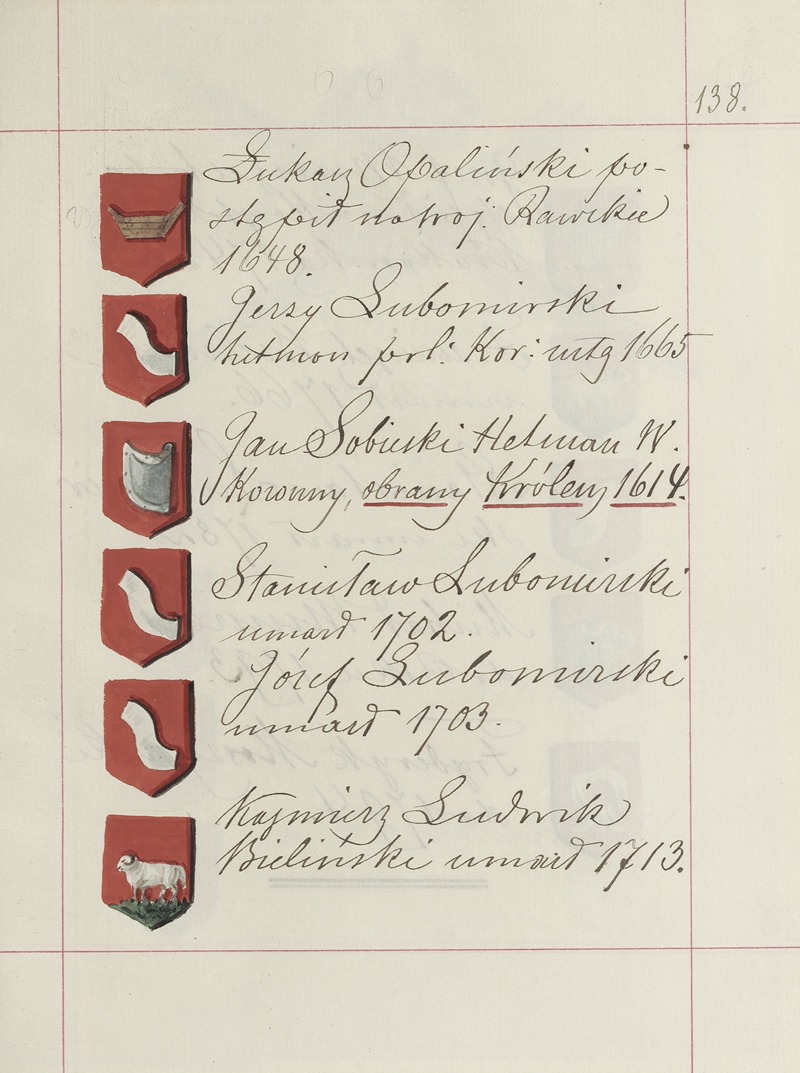 138.
Łukasz Opaliński po-
stąpił na woj. Rawskie
1648.
Jerzy Lubomirski
hetman pol: Kor: ustą 1665
Jan Sobieski Hetman W.
Koronny, obrany Królem 1614.
Stanisław Lubomirski
umarł 1702.
Józef Lubomirski
umarł 1703.
Kazmierz Ludwik
Bieliński umarł 1713.